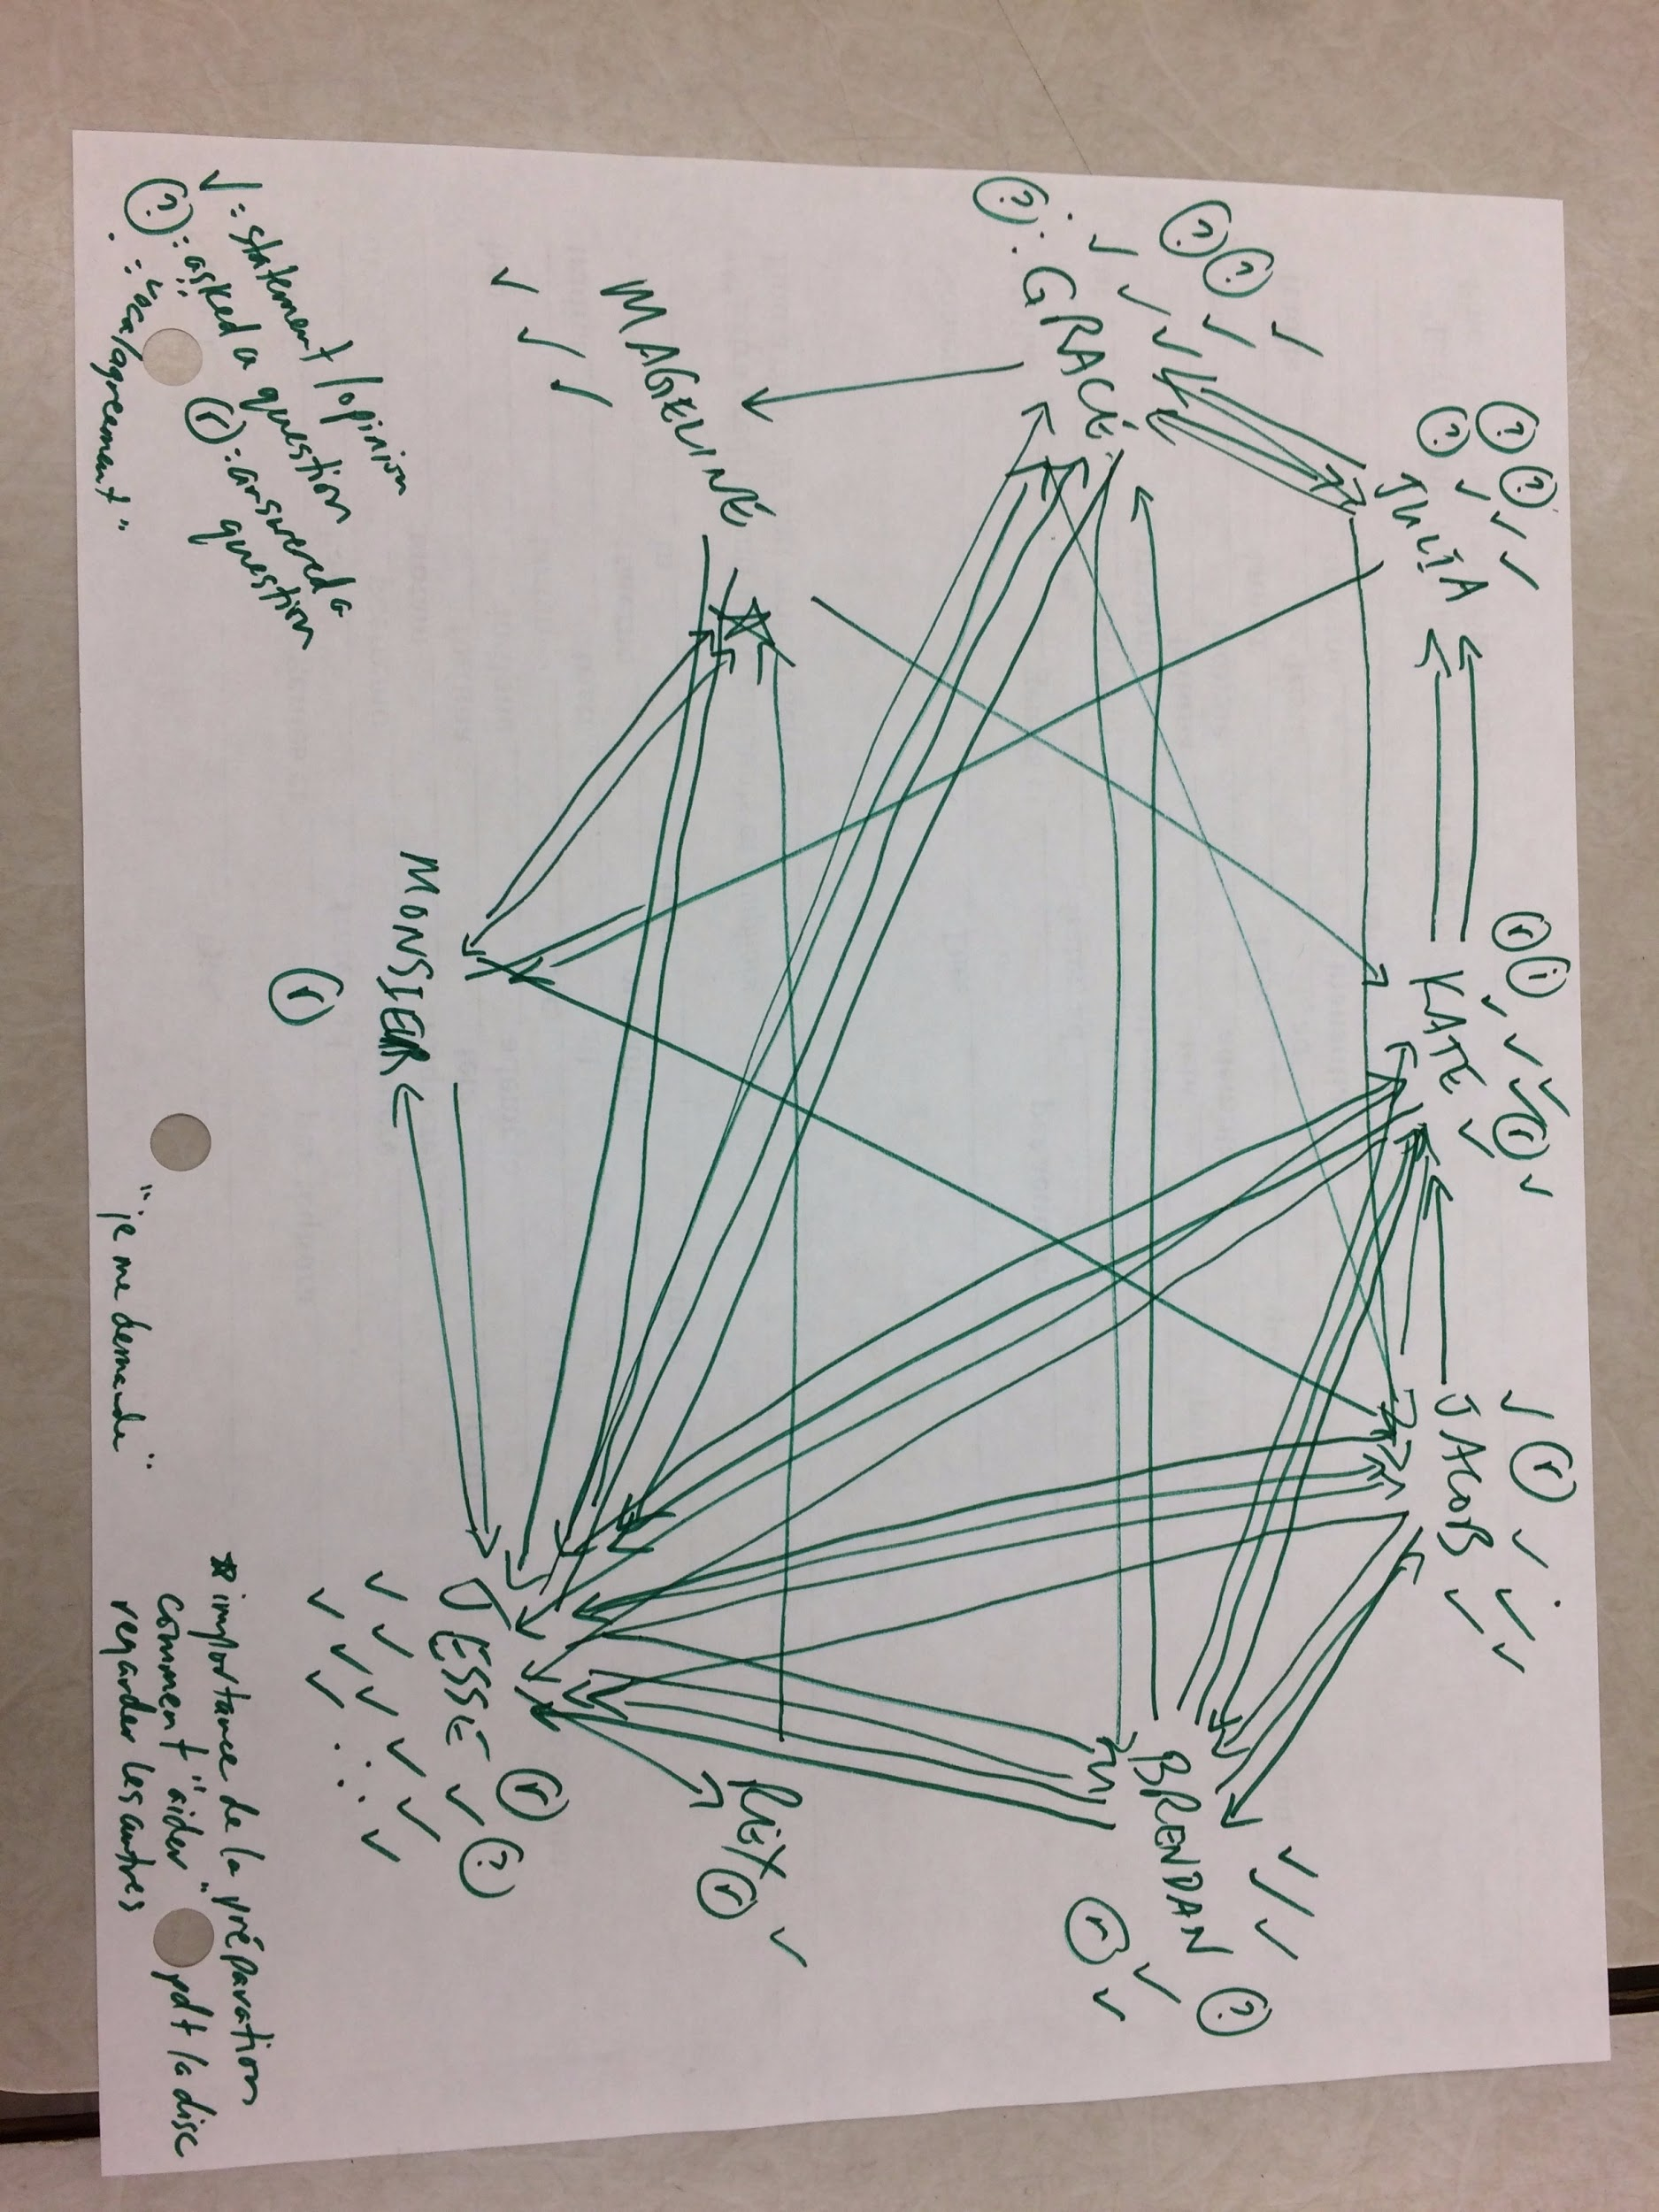 JULIA
KATE
JACOB
GRACE
BRENDAN
MAGELINE
REX
MONSIEUR
JESSE
✓ : statement / opinion
? : asked a question
r : answered a
question
"je me demande"
*importance de la préparation
comment "aider" pdt la disc
regarder les autres